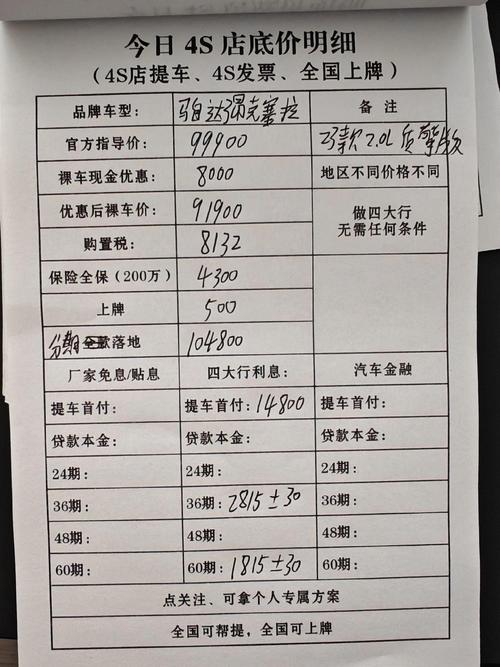 今日4S店底价明细
(4S店提车、4S发票、全国上牌)
品牌车型: 马自达昂克赛拉 备注
官方指导价: 99900 23款2.0L质擎版
裸车现金优惠: 8000 地区不同价格不同
优惠后裸车价: 91900 做四大行
无需任何条件
购置税: 8132
保险全保(200万) 4300
上牌 500
分期 全款落地 104800
厂家免息/贴息 四大行利息: 汽车金融
提车首付: 提车首付: 14800 提车首付:
贷款本金: 贷款本金: 贷款本金:
24期: 24期: 24期:
36期: 36期: 2815±30 36期:
48期: 48期: 48期:
60期: 60期: 1815±30 60期:
点关注、可拿个人专属方案
全国可帮提,全国可上牌